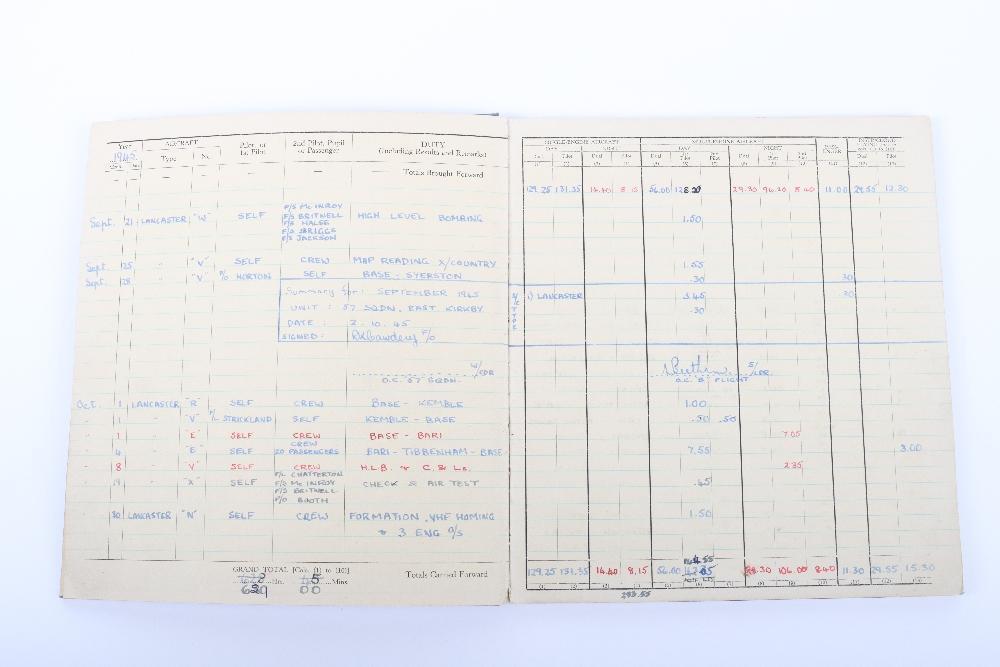 Year AIRCRAFT Pilot, or 1st Pilot 2nd Pilot, Pupil or Passenger DUTY (Including Results and Remarks)
Type No.
Totals Brought Forward
F/S McINROY
Sept. 21 LANCASTER "W" SELF F/S BRITNELL HIGH LEVEL BOMBING
F/S JACKSON
Sept. 25 " "V" SELF CREW MAP READING X/COUNTRY
Sept. 28 "V" HORTON SELF BASE - SYERSTON
Summary for: SEPTEMBER 1945
UNIT: 57 SQDN. EAST KIRKBY
DATE: 2.10.45
SIGNED: F/O
W/CDR
O.C. 57 SQDN.
Oct. 1 LANCASTER "R" SELF CREW BASE - KEMBLE
" 1 " "V" F/L STRICKLAND SELF KEMBLE - BASE
" 1 "E" SELF CREW BASE - BARI
CREW
" 4 "E" SELF 20 PASSENGERS BARI - TIBBENHAM - BASE
" 8 "V" SELF CREW H.L.B. & C. & Ls.
F/L CHATTERTON
" 19 "X" SELF F/O McINROY CHECK & AIR TEST
F/S BRITNELL
F/O BOOTH
" 30 LANCASTER "N" SELF CREW FORMATION, VHF HOMING
& 3 ENG O/S
GRAND TOTAL [Cols. (1) to (10)]
Hrs. Mins.
Totals Carried Forward
SINGLE-ENGINE AIRCRAFT MULTI-ENGINE AIRCRAFT
DAY NIGHT DAY NIGHT
129.25 131.35 14.40 8.15 56.00 29.30 96.20 8.40 11.00 29.55 12.30
1.50
1.55
.30 .30
1) LANCASTER 3.45 .30
.30
S/LDR.
O.C. B FLIGHT
1.00
.50 .50
7.05
7.55 3.00
2.35
.45
1.50
129.25 131.35 14.40 8.15 56.00 106.00 8.40 11.30 29.55 15.30